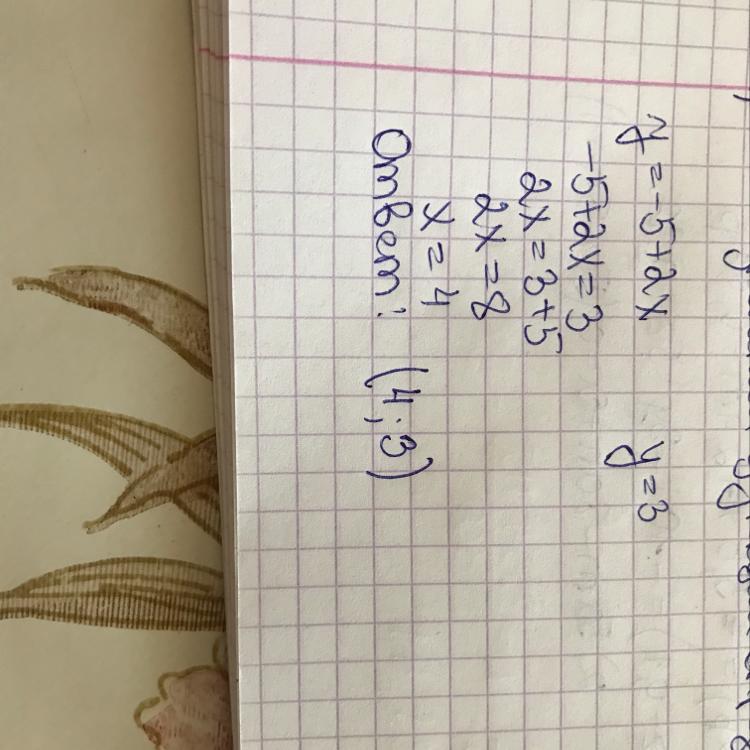 y = -5+2x y = 3
-5+2x = 3
2x = 3+5
2x = 8
x = 4
Ответ: (4; 3)